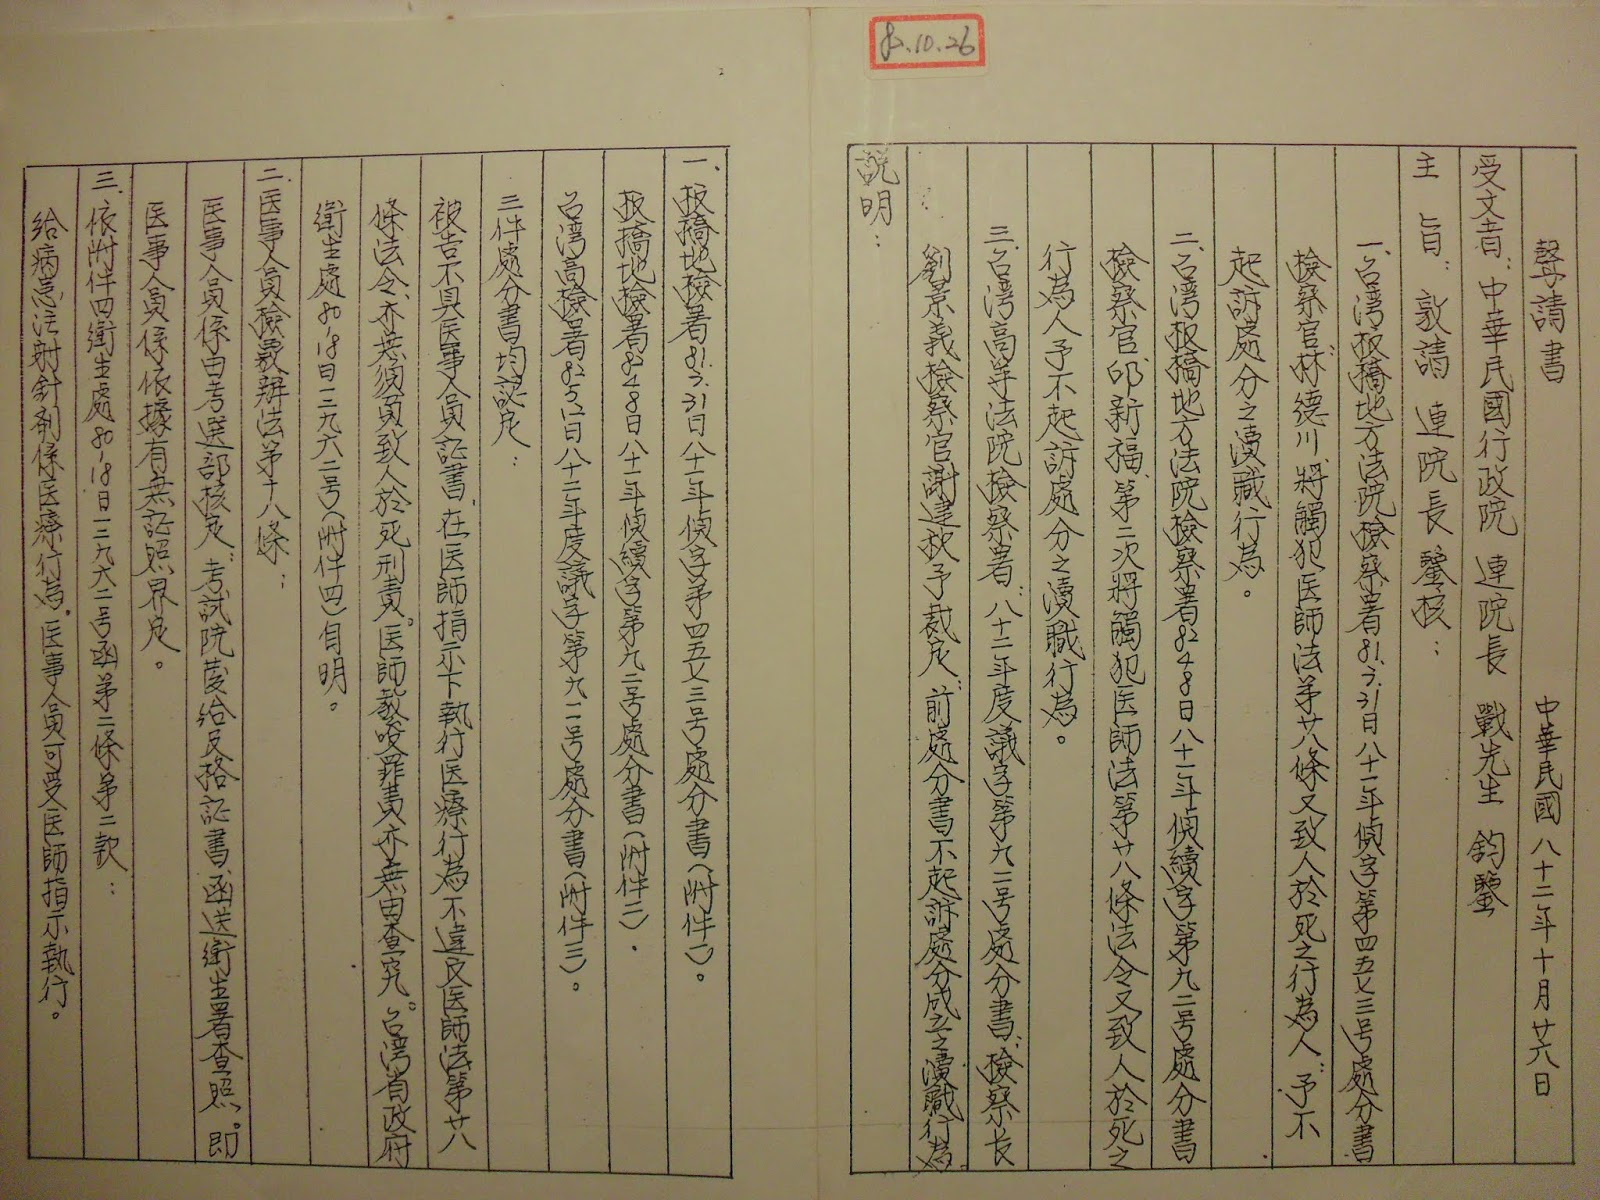 82.10.26
聲請書
中華民國八十二年十月廿六日
受文者：中華民國行政院 連院長 戰先生 鈞鑒
主 旨：敦請 連院長 鑒核：
一、台湾板橋地方法院檢察署81.7.31日八十一年偵字第四五七三号處分書
檢察官林德川、將觸犯医師法第廿八條又致人於死之行為人：予不
起訴處分之瀆職行為。
二、台湾板橋地方法院檢察署82.4.8日八十一年偵續字第九二号處分書
檢察官邱新福、第二次將觸犯医師法第廿八條法令又致人於死之
行為人予不起訴處分之瀆職行為。
三、台湾高等法院檢察署：八十二年度議字第九一二号處分書：檢察長
劉景義檢察官謝建 予裁定：前處分書不起訴處分成立之瀆職行為
說明：
一、板橋地檢署81.7.31日八十一年偵字第四五七三号處分書（附件一）。
板橋地檢署82.4.8日八十一年偵續字第九二号處分書（附件二）．
台湾高檢署82.5.12日八十二年度議字第九一二号處分書（附件三）。
三件處分書均認定：
被告不具医事人員証書、在医師指示下執行医療行為不違反医師法第廿八
條法令、亦無須負致人於死刑責。医師教唆罪責亦無由查究。台湾省政府
衛生處80.1.18日一三九六二号（附件四）自明。
二、医事人員檢覈辦法第十八條：
医事人員係由考選部核定：考試院發給及格証書、函送衛生署查照。即
医事人員係依據有無証照界定。
三、依附件四衛生處80.1.18日一三九六二号函第二條第二款：
給病患注射針剤係医療行為。医事人員可受医師指示執行。